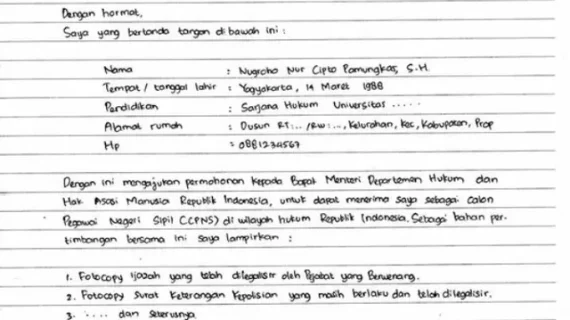 Dengan hormat,
Saya yang bertanda tangan di bawah ini :
Nama : Nugroho Nur Cipto Pamungkas, S.H.
Tempat / tanggal lahir : Yogyakarta, 14 Maret 1988
Pendidikan : Sarjana Hukum Universitas .....
Alamat rumah : Dusun RT:.. /RW:.., Kelurahan, Kec, Kabupaten, Prop
Hp : 0881234567
Dengan ini mengajukan permohonan kepada Bapak Menteri Departemen Hukum dan
Hak Asasi Manusia Republik Indonesia, untuk dapat menerima saya sebagai Calon
Pegawai Negeri Sipil (CPNS) di wilayah hukum Republik Indonesia. Sebagai bahan per-
timbangan bersama ini saya lampirkan :
1. Fotocopy Ijazah yang telah dilegalisir oleh Pejabat yang Berwenang.
2. Fotocopy Surat Keterangan Kepolisian yang masih berlaku dan telah dilegalisir.
3. ..... dan seterusnya